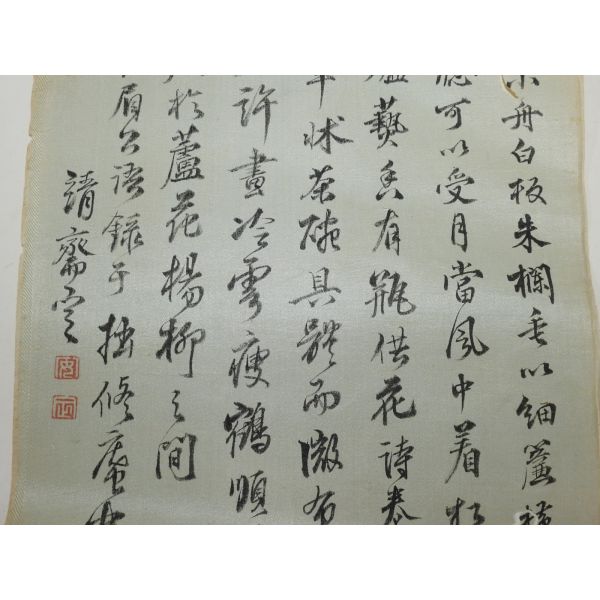 舟白板朱欄垂以細簾
可以受月當風中着
藝香有瓶供花詩卷
牀茶碗具體而微
許畫冷雲瘦鶴順
於蘆花楊柳之間
眉公語錄于拙修庵
靖齋